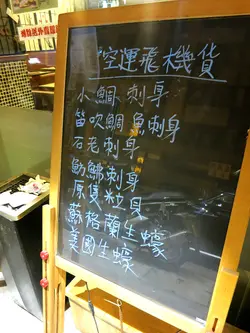 空運飛機貨
小鯛刺身
笛吹鯛魚刺身
石毛刺身
魴鮄刺身
原隻粒貝
蘇格蘭生蠔
美國生蠔